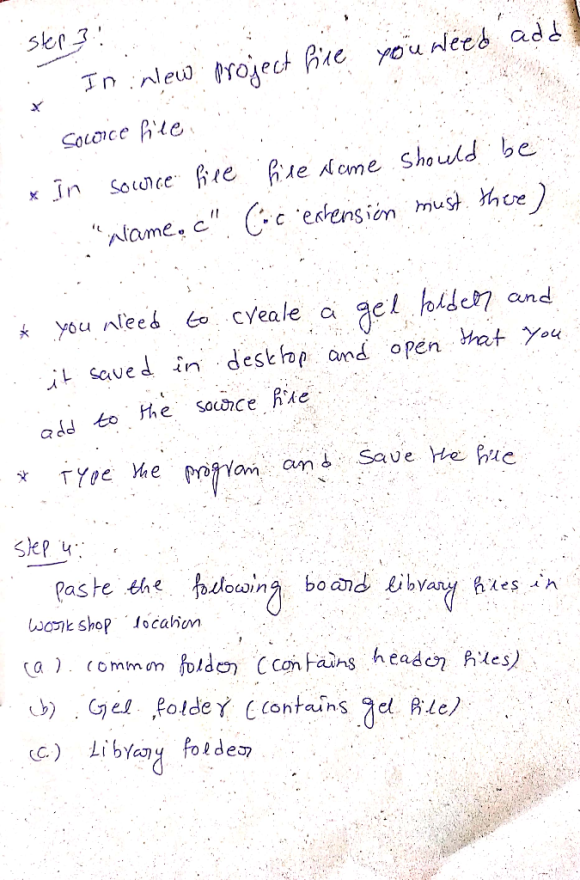 Step 3:
* In New project file you Need add
source file.
* In source file file Name should be
"Name.c" (.c extension must there)
* you Need to create a gel folder and
it saved in desktop and open that you
add to the source file
* Type the program and save the file
Step 4:
paste the following board library files in
workshop location
(a). common folder (contains header files)
(b). Gel folder (contains gel file)
(c.) Library folder